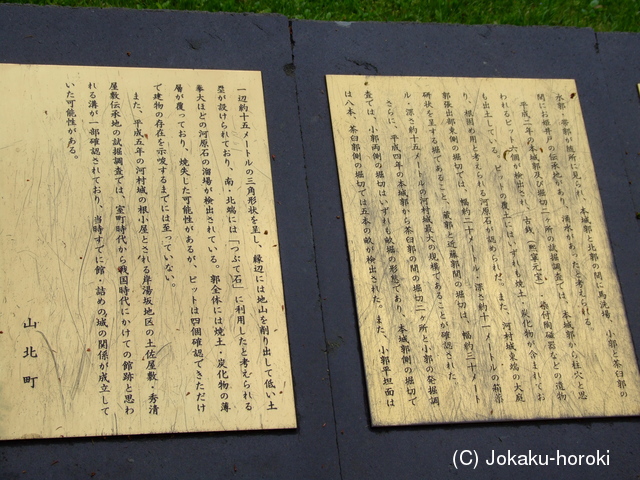 水郭・帯郭が随所に見られ、本城郭と蔵郭の間に馬洗場、小郭と茶臼郭の
間にお姫井戸の伝承地があり、湧水があったと考えられる。
平成二年の本城郭及び堀切二ヶ所の試掘調査では、本城郭から柱穴と思
われるピット六個が検出され、古銭（熙寧元宝）・舶
も出土している。ピットの覆土にはいずれも焼土・炭化物が含まれてお
り、根固め用と考えられる河原石が認められた。また、河村城東端の大庭
郭張出部東側の堀切では、幅約二十メートル・深さ約十一メートルの箱薬
研状を呈する堀であること、蔵郭と近藤郭間の堀切は、幅約三十メート
ル・深さ約十五メートルの河村城最大の規模であることが確認された。
さらに、平成四年の本城郭から茶臼郭の間の堀切二ヶ所と小郭の発掘調
査では、小郭両側の堀切はいずれも畝堀の形態であり、本城郭側の堀切で
は八本、茶臼郭側の堀切では五本の畝が検出された。また、小郭平坦面は
一辺約十五メートルの三角形状を呈し、縁辺には地山を削り出して低い土
塁が設けられており、南・北端には「つぶて石」に利用したと考えられる
拳大ほどの河原石の溜場が検出されている。郭全体には焼土・炭化物の薄
層が覆っており、焼失した可能性があるが、ピットは四個確認できただけ
で建物の存在を示唆するまでには至っていない。
また、平成五年の河村城の根小屋とされる岸湯坂地区の土佐屋敷・秀清
屋敷伝承地の試掘調査では、室町時代から戦国時代にかけての館跡と思わ
れる溝が一部確認されており、当時すでに館・詰めの城の関係が成立して
いた可能性がある。
山北町
(C) Jokaku-horoki